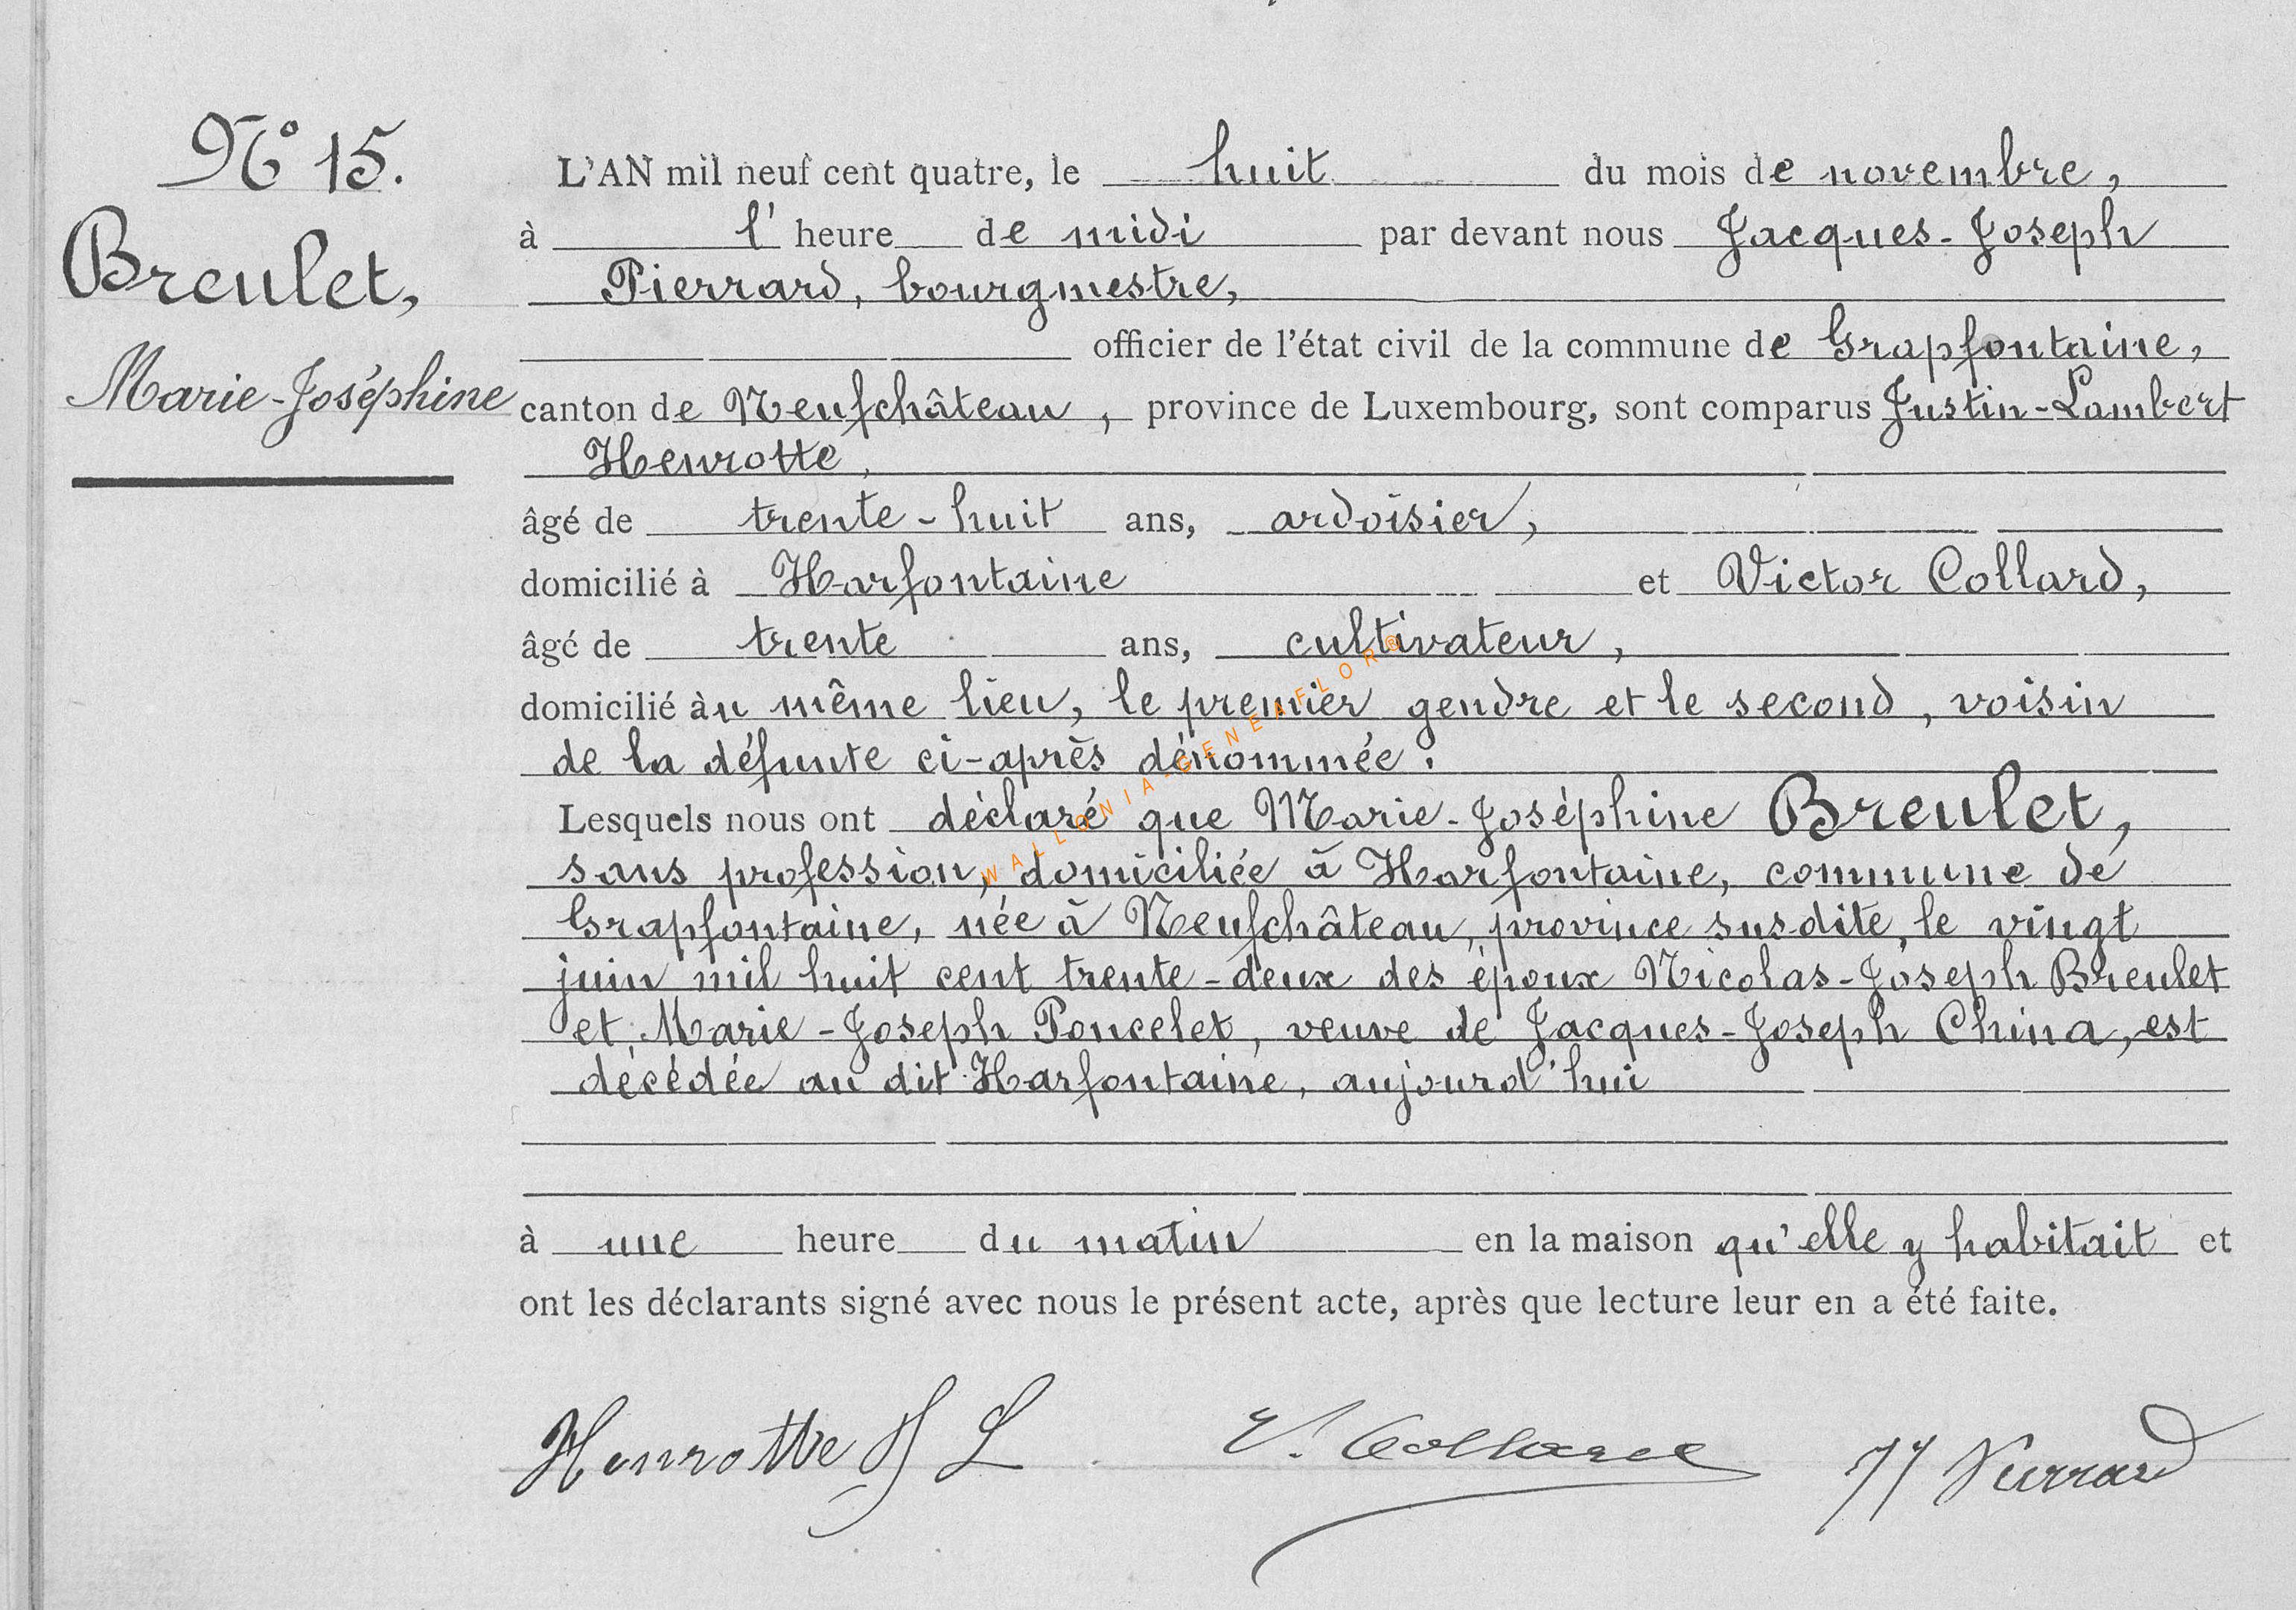 N° 15.
Breulet,
Marie-Joséphine
L'AN mil neuf cent quatre, le huit du mois de novembre,
à l' heure de midi par devant nous Jacques-Joseph
Pierrard, bourgmestre,
officier de l'état civil de la commune de Grapfontaine,
canton de Neufchâteau, province de Luxembourg, sont comparus Justin-Lambert
Henrotte,
âgé de trente-huit ans, ardoisier,
domicilié à Harfontaine et Victor Collard,
âgé de trente ans, cultivateur,
domicilié àu même lieu, le premier gendre et le second, voisin
de la défunte ci-après dénommée.
Lesquels nous ont déclaré que Marie-Joséphine Breulet,
sans profession, domiciliée à Harfontaine, commune de
Grapfontaine, née à Neufchâteau, province susdite, le vingt
juin mil huit cent trente-deux des époux Nicolas-Joseph Breulet
et Marie-Joseph Poncelet, veuve de Jacques-Joseph China, est
décédée au dit Harfontaine, aujourd'hui
à une heure du matin en la maison qu'elle y habitait et
ont les déclarants signé avec nous le présent acte, après que lecture leur en a été faite.
Henrotte J L V. Collard JJ Pierrard
WALLONIA-GENEAFLOR®